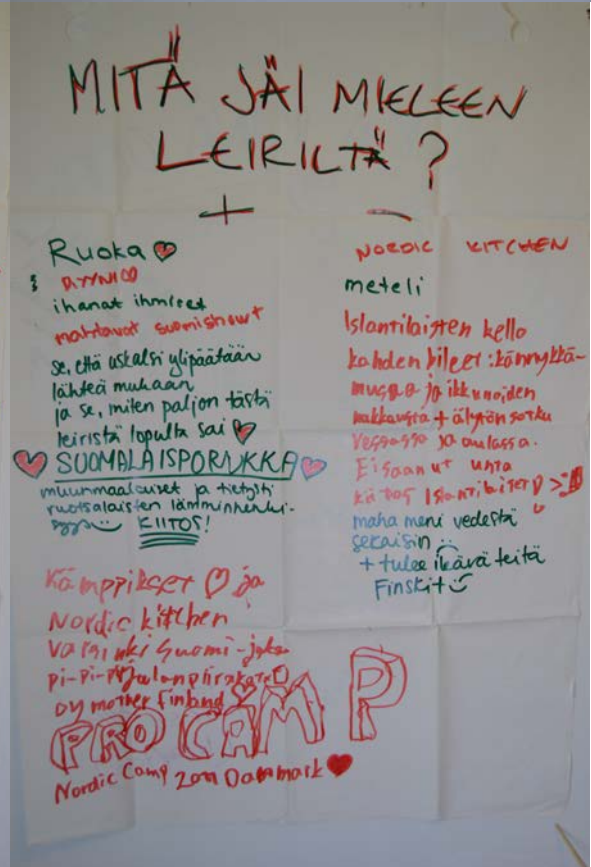 MITÄ JÄI MIELEEN
LEIRILTÄ ?
+
Ruoka ♡
ihanat ihmiset
mahtavat suomishowt
se, että uskalsi ylipäätään
lähteä mukaan
ja se, miten paljon tästä
leiristä lopulta sai ♥
♥ SUOMALAISPORUKKA ♥
muunmaalaiset ja tietysti
ruotsalaisten lämminhenki-
syys KIITOS!
Kämppikset ♡ ja
Nordic kitchen
Varsinki Suomi-
pi-pi-
oy mother finland
PRO CÄMP
Nordic Camp Danmark ♥
−
NORDIC KITCHEN
meteli
Islantilaisten kello
kahden bileet: kännykkä-
mugaa ja ikkunoiden
+ älytön sotku
vessassa ja aulassa.
Ei saanut unta
kiitos
maha meni vedestä
sekaisin :(
+ tulee ikävä teitä
Finskit :)